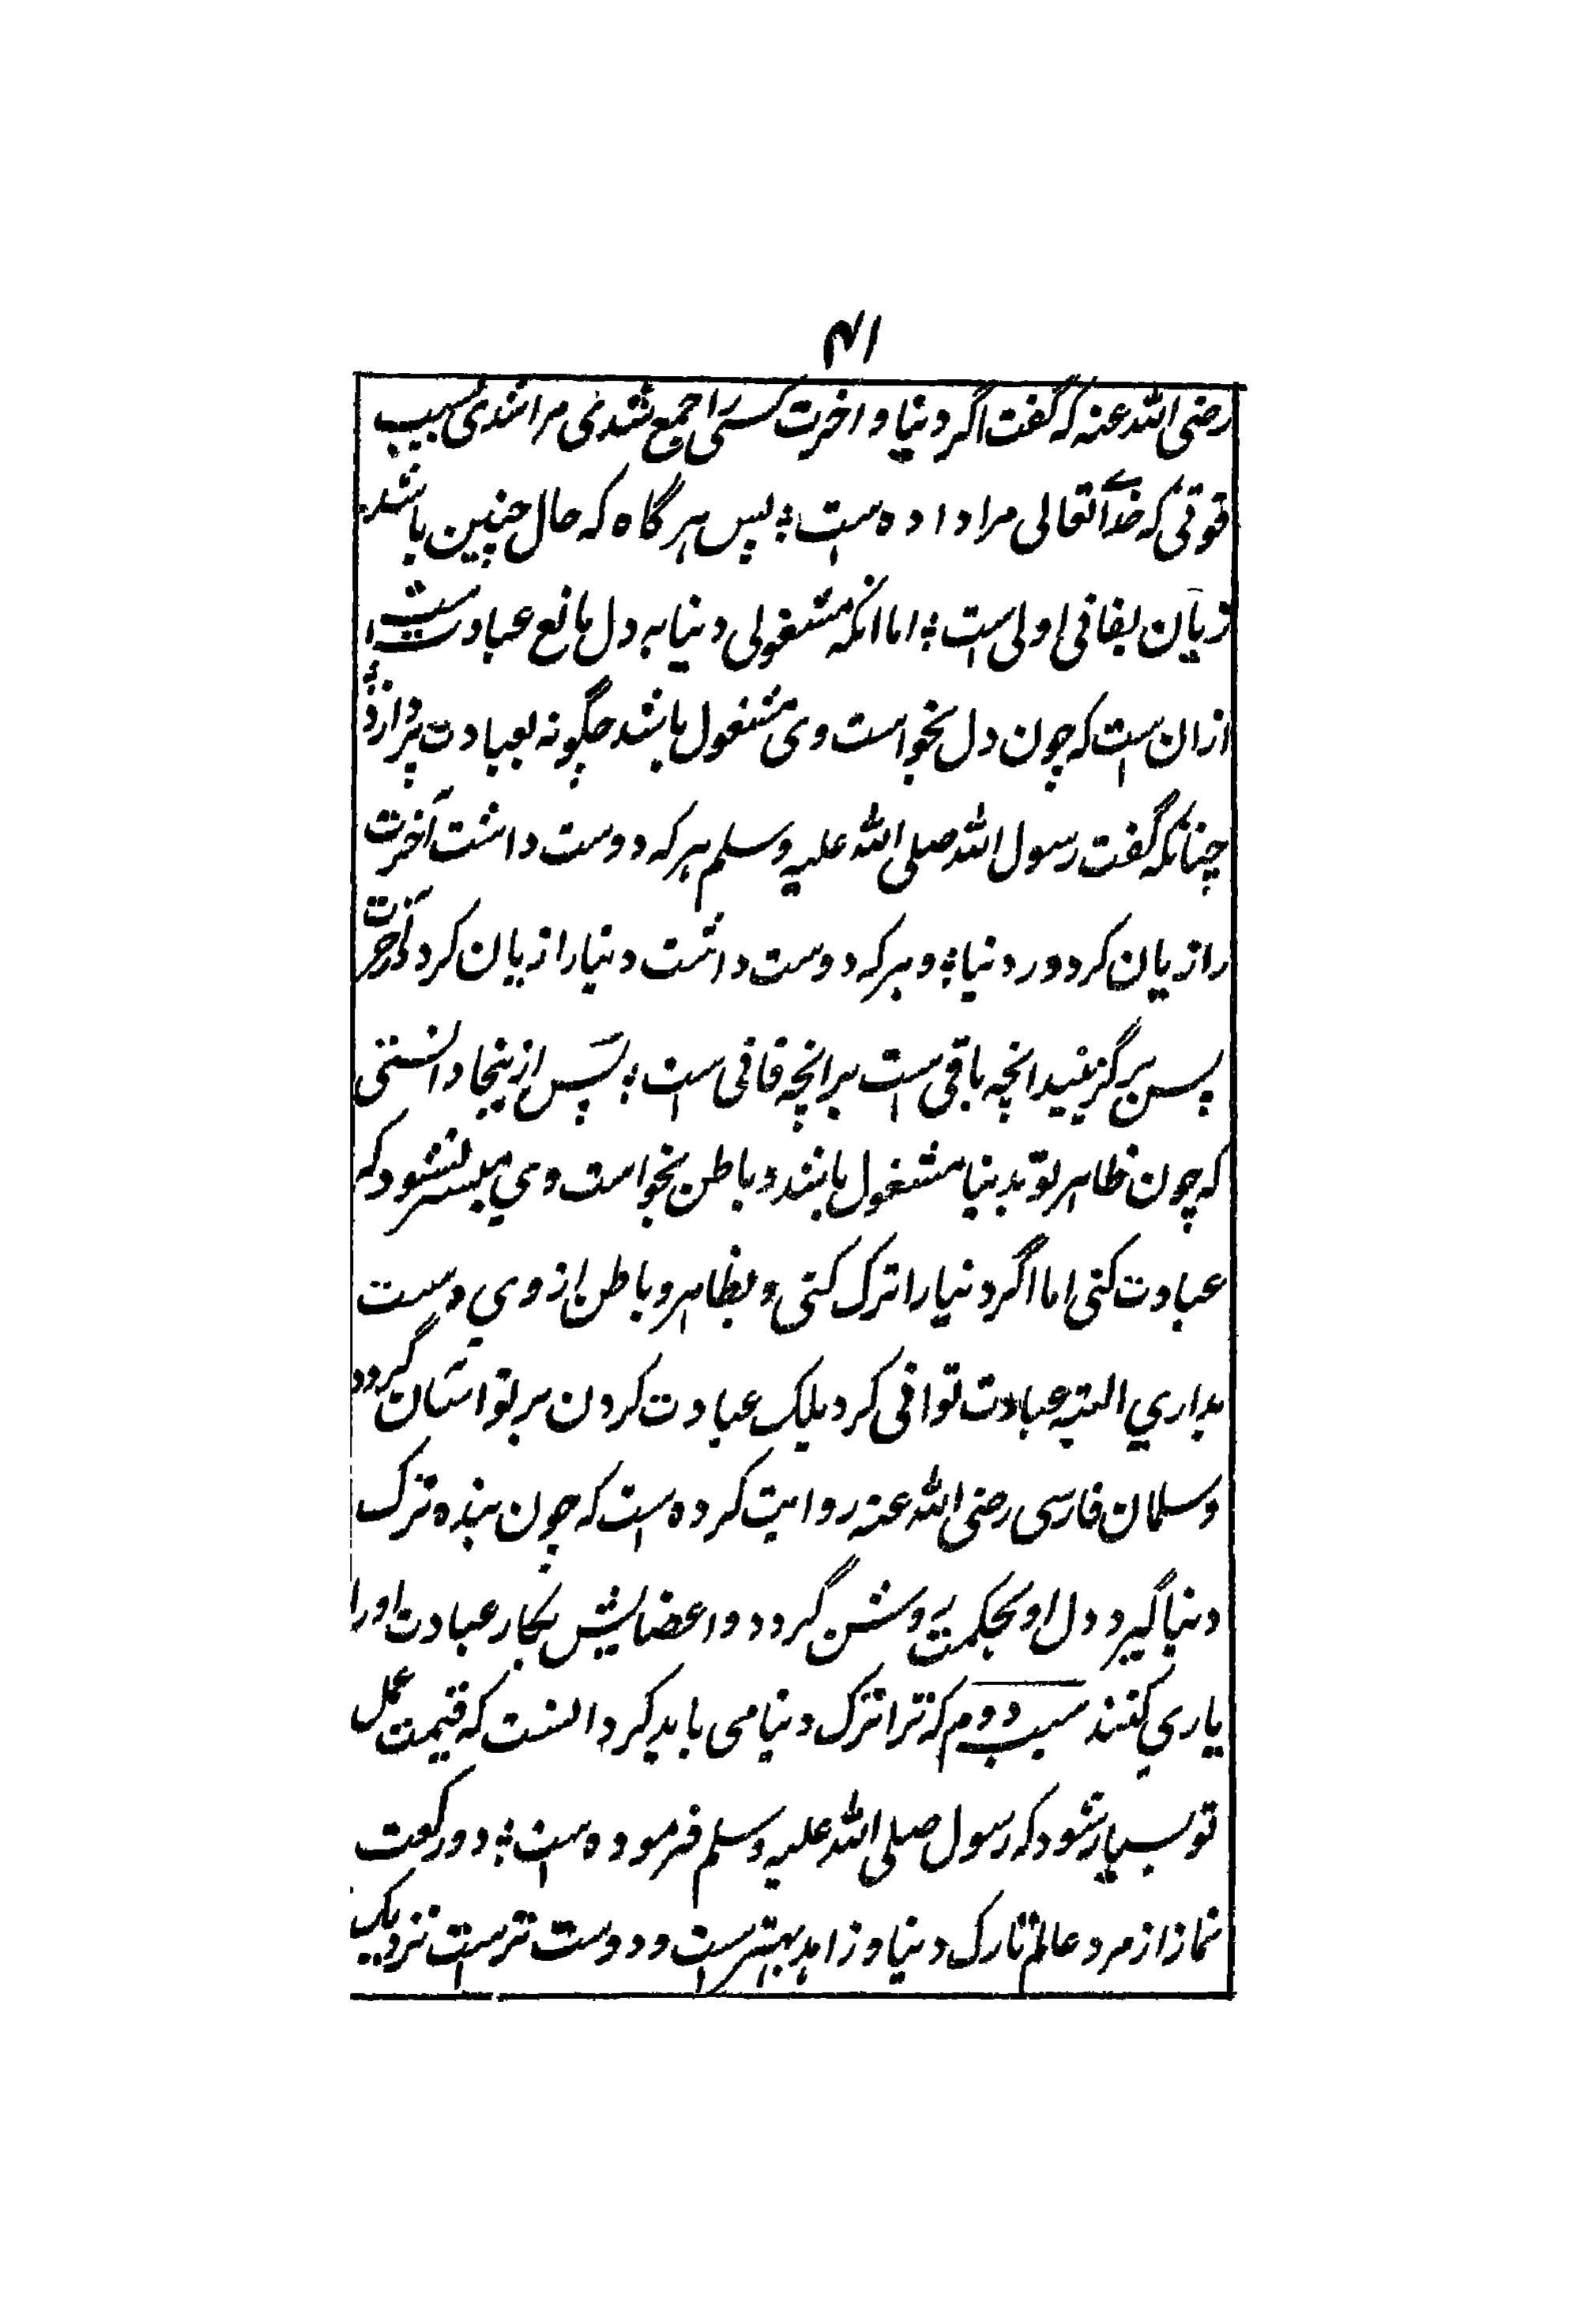 ۴۱
رضی الله عنه که گفت اگر دنیا و اخرت کسی را جمع شدی مرا شدی بسبب
قوتی که خداے تعالی مرا داده است ؛ پس هر گاه که حال چنین باشد
زیان بفانی اولی است ؛ اما انکه مشغولی دنیا به دل مانع عبادت است ؛
ازان است که چون دل بخواست وی مشغول باشد چگونه بعبادت پردازد ؛
چنانکه گفت رسول الله صلی الله علیه وسلم هر که دوست داشت آخرت
را زیان کرد در دنیا ؛ و هر که دوست داشت دنیا را زیان کرد در آخرت
پس برگزینید انچه باقی است بر انچه فانی است ؛ پس ازینجا دانستی
که چون ظاهر تو بدنیا مشغول باشد و باطن بخواست وي میسر نشود که
عبادت کنی اما اگر دنیا را ترک کنی و بظاهر و باطن از وي دست
بداري البته عبادت توانی کرد بلکه عبادت کردن بر تو آسان گردد
و سلمان فارسی رضی الله عنه روایت کرده است که چون بنده ترک
دنیا گیرد دل او بحکمت روشن گردد و اعضایش بکار عبادت او را
یاري کنند سبب دوم که ترا ترک دنیا می باید کرد انست که قیمت عمل
تو بسیار شود که رسول صلی الله علیه وسلم فرموده است ؛ دو رکعت
نماز از مرد عالم تارک دنیا و زاهد بهتر است و دوست تر است نزدیک